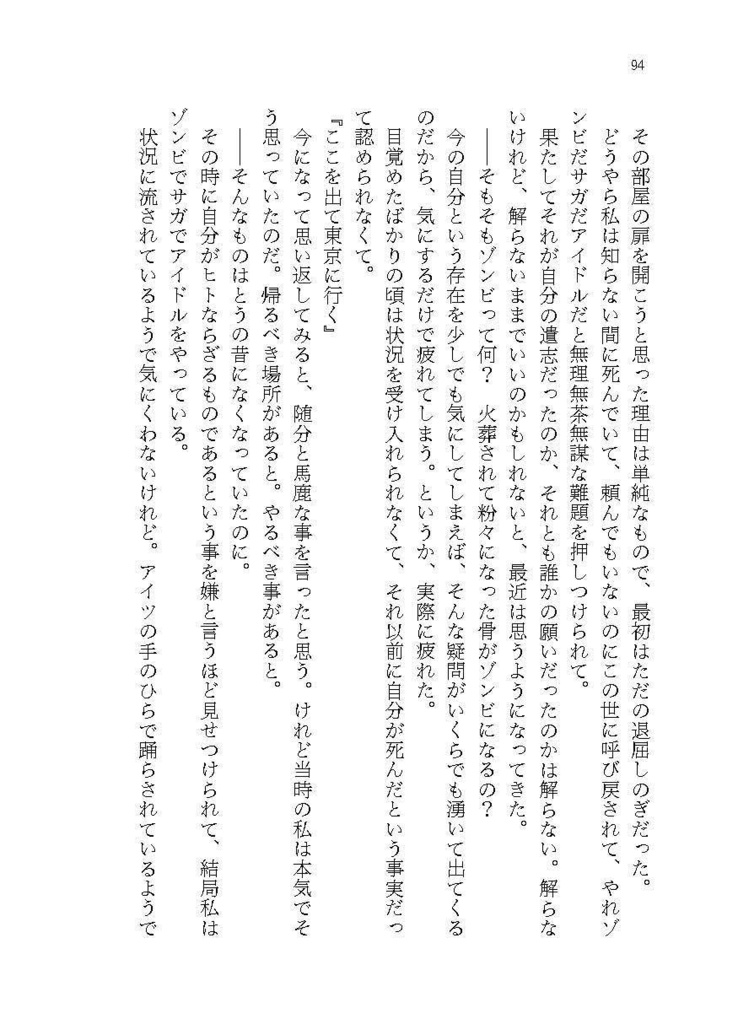 94
その部屋の扉を開こうと思った理由は単純なもので、最初はただの退屈しのぎだった。
どうやら私は知らない間に死んでいて、頼んでもいないのにこの世に呼び戻されて、やれゾ
ンビだサガだアイドルだと無理無茶無謀な難題を押しつけられて。
果たしてそれが自分の遺志だったのか、それとも誰かの願いだったのかは解らない。解らな
いけれど、解らないままでいいのかもしれないと、最近は思うようになってきた。
――そもそもゾンビって何？　火葬されて粉々になった骨がゾンビになるの？
今の自分という存在を少しでも気にしてしまえば、そんな疑問がいくらでも湧いて出てくる
のだから、気にするだけで疲れてしまう。というか、実際に疲れた。
目覚めたばかりの頃は状況を受け入れられなくて、それ以前に自分が死んだという事実だっ
て認められなくて。
『ここを出て東京に行く』
今になって思い返してみると、随分と馬鹿な事を言ったと思う。けれど当時の私は本気でそ
う思っていたのだ。帰るべき場所があると。やるべき事があると。
――そんなものはとうの昔になくなっていたのに。
その時に自分がヒトならざるものであるという事を嫌と言うほど見せつけられて、結局私は
ゾンビでサガでアイドルをやっている。
状況に流されているようで気にくわないけれど。アイツの手のひらで踊らされているようで